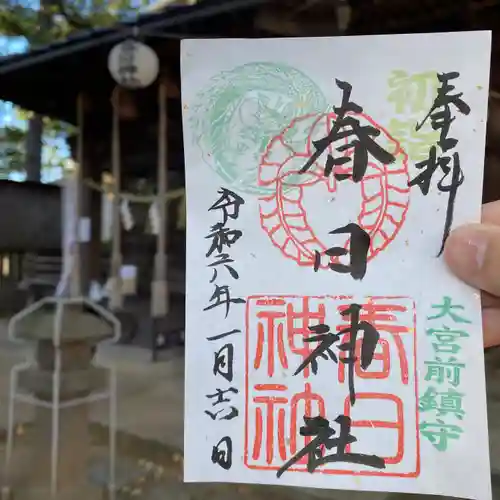 奉拝
初詣
大宮前鎮守
春日神社
春日
神社
令和六年一月十六日